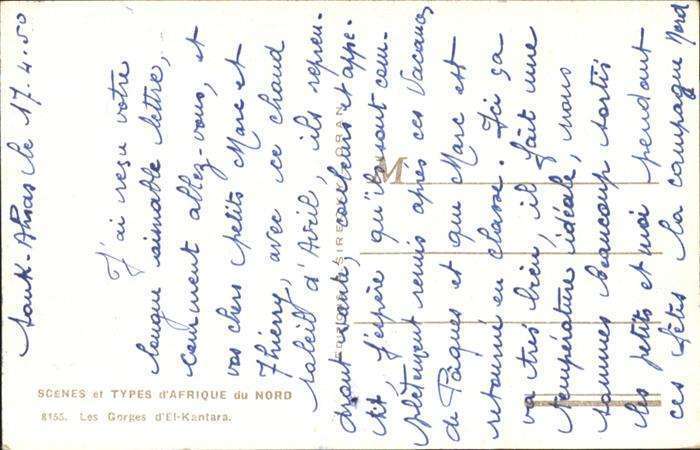 Souk-Ahras le 17.4.50
J'ai reçu votre
longue aimable lettre,
comment allez-vous, et
vos chers petits Marc et
Thierry, avec ce chaud
soleil d'Avril, ils repren-
dront vite, couleurs et appé-
tit, j'espère qu'ils sont com-
plètement remis après ces Vacances
de Pâques et que Marc est
retourné en classe. Ici ça
va très bien, il fait une
température idéale, nous
sommes beaucoup sortis
les petits et moi pendant
ces fêtes la campagne Nord
SCENES et TYPES d'AFRIQUE du NORD
8155. Les Gorges d'El-Kantara.
M
SIRE
ORAN